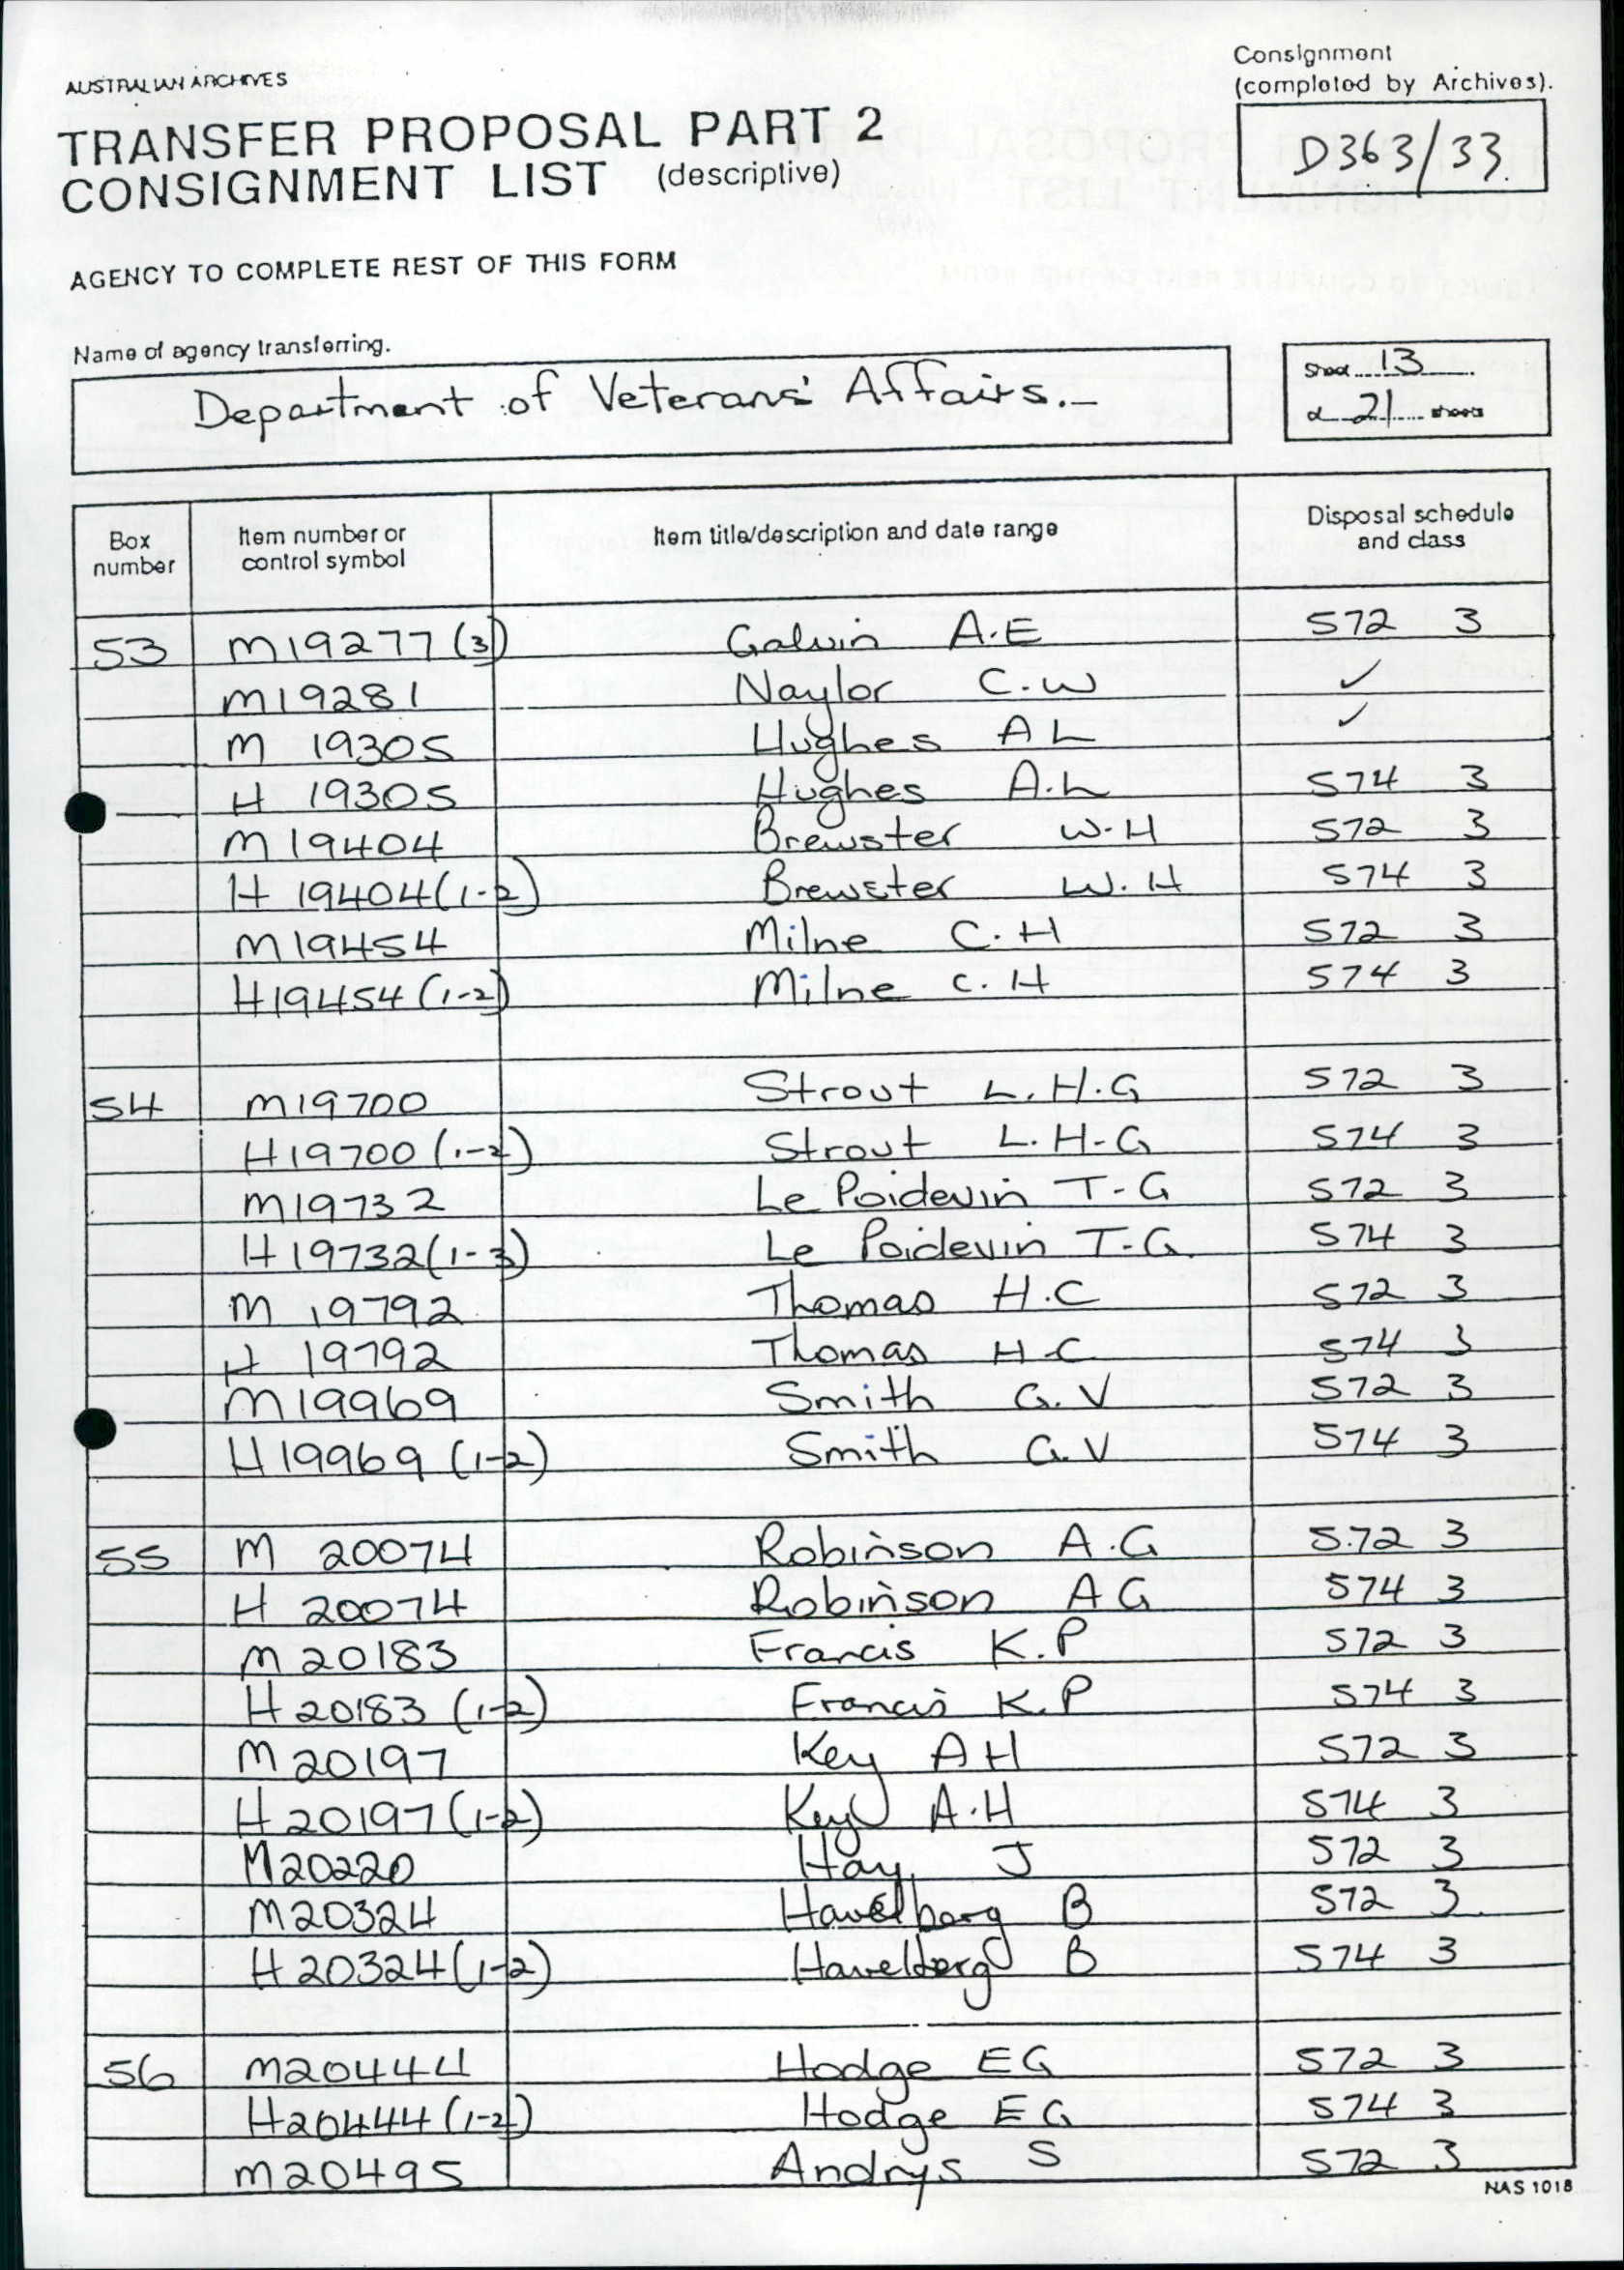 Consignment
AUSTRALIAN ARCHIVES
(completed by Archives).
TRANSFER PROPOSAL PART 2
CONSIGNMENT LIST (descriptive)
D363/33
AGENCY TO COMPLETE REST OF THIS FORM
Name of agency transferring.
Department of Veterans' Affairs.-
Sheet 13
of 21 sheets
Box number Item number or control symbol Item title/description and date range Disposal schedule and class
53 M19277 (3) Galvin A.E 572 3
M19281 Naylor C.W ✓
M 19305 Hughes A L ✓
H 19305 Hughes A.L 574 3
M 19404 Brewster W.H 572 3
H 19404(1-2) Brewster W.H 574 3
M19454 Milne C.H 572 3
H19454 (1-2) Milne C.H 574 3
54 M19700 Strout L.H.G 572 3
H19700 (1-2) Strout L.H-G 574 3
M19732 Le Poidevin T-G 572 3
H 19732(1-3) Le Poidevin T-G. 574 3
M 19792 Thomas H.C 572 3
H 19792 Thomas H C 574 3
M19969 Smith G.V 572 3
H19969 (1-2) Smith G.V 574 3
55 M 20074 Robinson A.G 5.72 3
H 20074 Robinson A G 574 3
M 20183 Francis K.P 572 3
H 20183 (1-2) Francis K.P 574 3
M 20197 Key A H 572 3
H 20197 (1-2) Key A.H 574 3
M20220 Hay J 572 3
M20324 Havelberg B 572 3.
H 20324 (1-2) Havelberg B 574 3
56 M20444 Hodge E G 572 3
H20444 (1-2) Hodge E G 574 3
M20495 Andrys S 572 3
NAS 1018